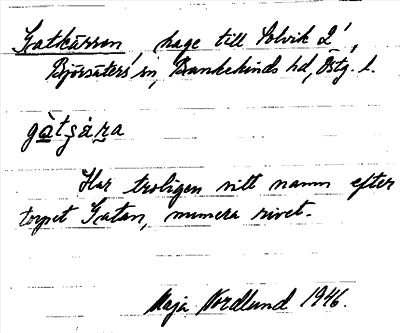 Gatkärren hage till Solvik 2',
Björsäters sn, Bankekinds hd, Östg. l.
gàtʂáɽa
Har troligen sitt namn efter
torpet Gatan, numera rivet.
Maja Nordlund 1946.